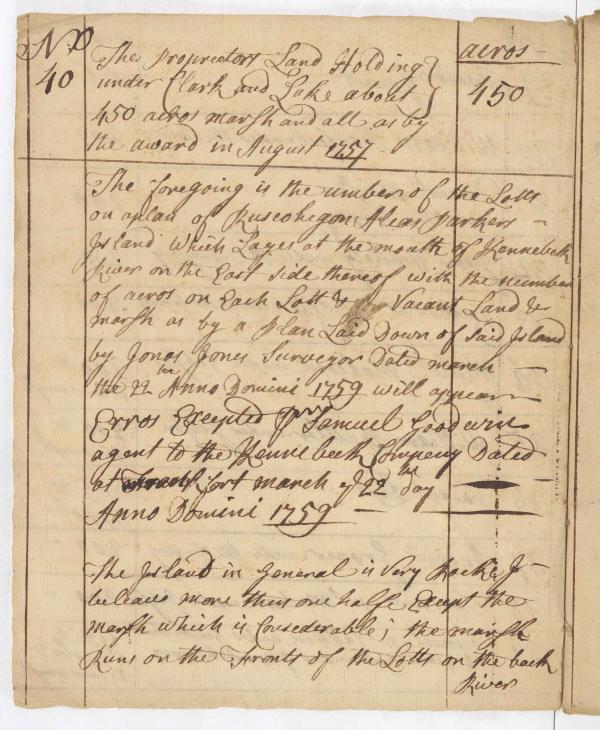 No
40
acros
450
The Proprietors Land Holding
under Clark and Lake about
450 acros marsh and all as by
the award in August 1757
The foregoing is the number of the Lotts
on a plan of Ruscohegon Aleas Parkers
Island which Layes at the mouth of Kennebeck
River on the East side thereof with the number
of acros on Each Lott & Vacant Land &
marsh as by a Plan Laid Down of said Island
by Jonas Jones Surveyor Dated march
the 22th Anno Domini 1759 will appear
Erros Excepted Pr Samuel Goodwin
agent to the Kennebeck Company Dated
at fort march ye 22th day
Anno Domini 1759
The Island in General is Very Rockey I
beleave more then one halfe Except the
marsh which is Considerable; the marsh
Runs on the Fronts of the Lotts on the back
River